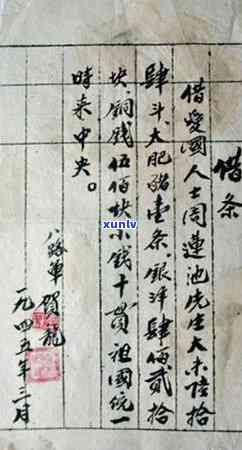 借条
借爱國人士周莲池先生大米陆拾
肆斗、大肥豬壹条、銀洋肆佰贰拾
块、銅钱伍佰块小钱十贯、祖國统一
時来中央。
八路軍 贺龍
一九四五年三月
xunlv